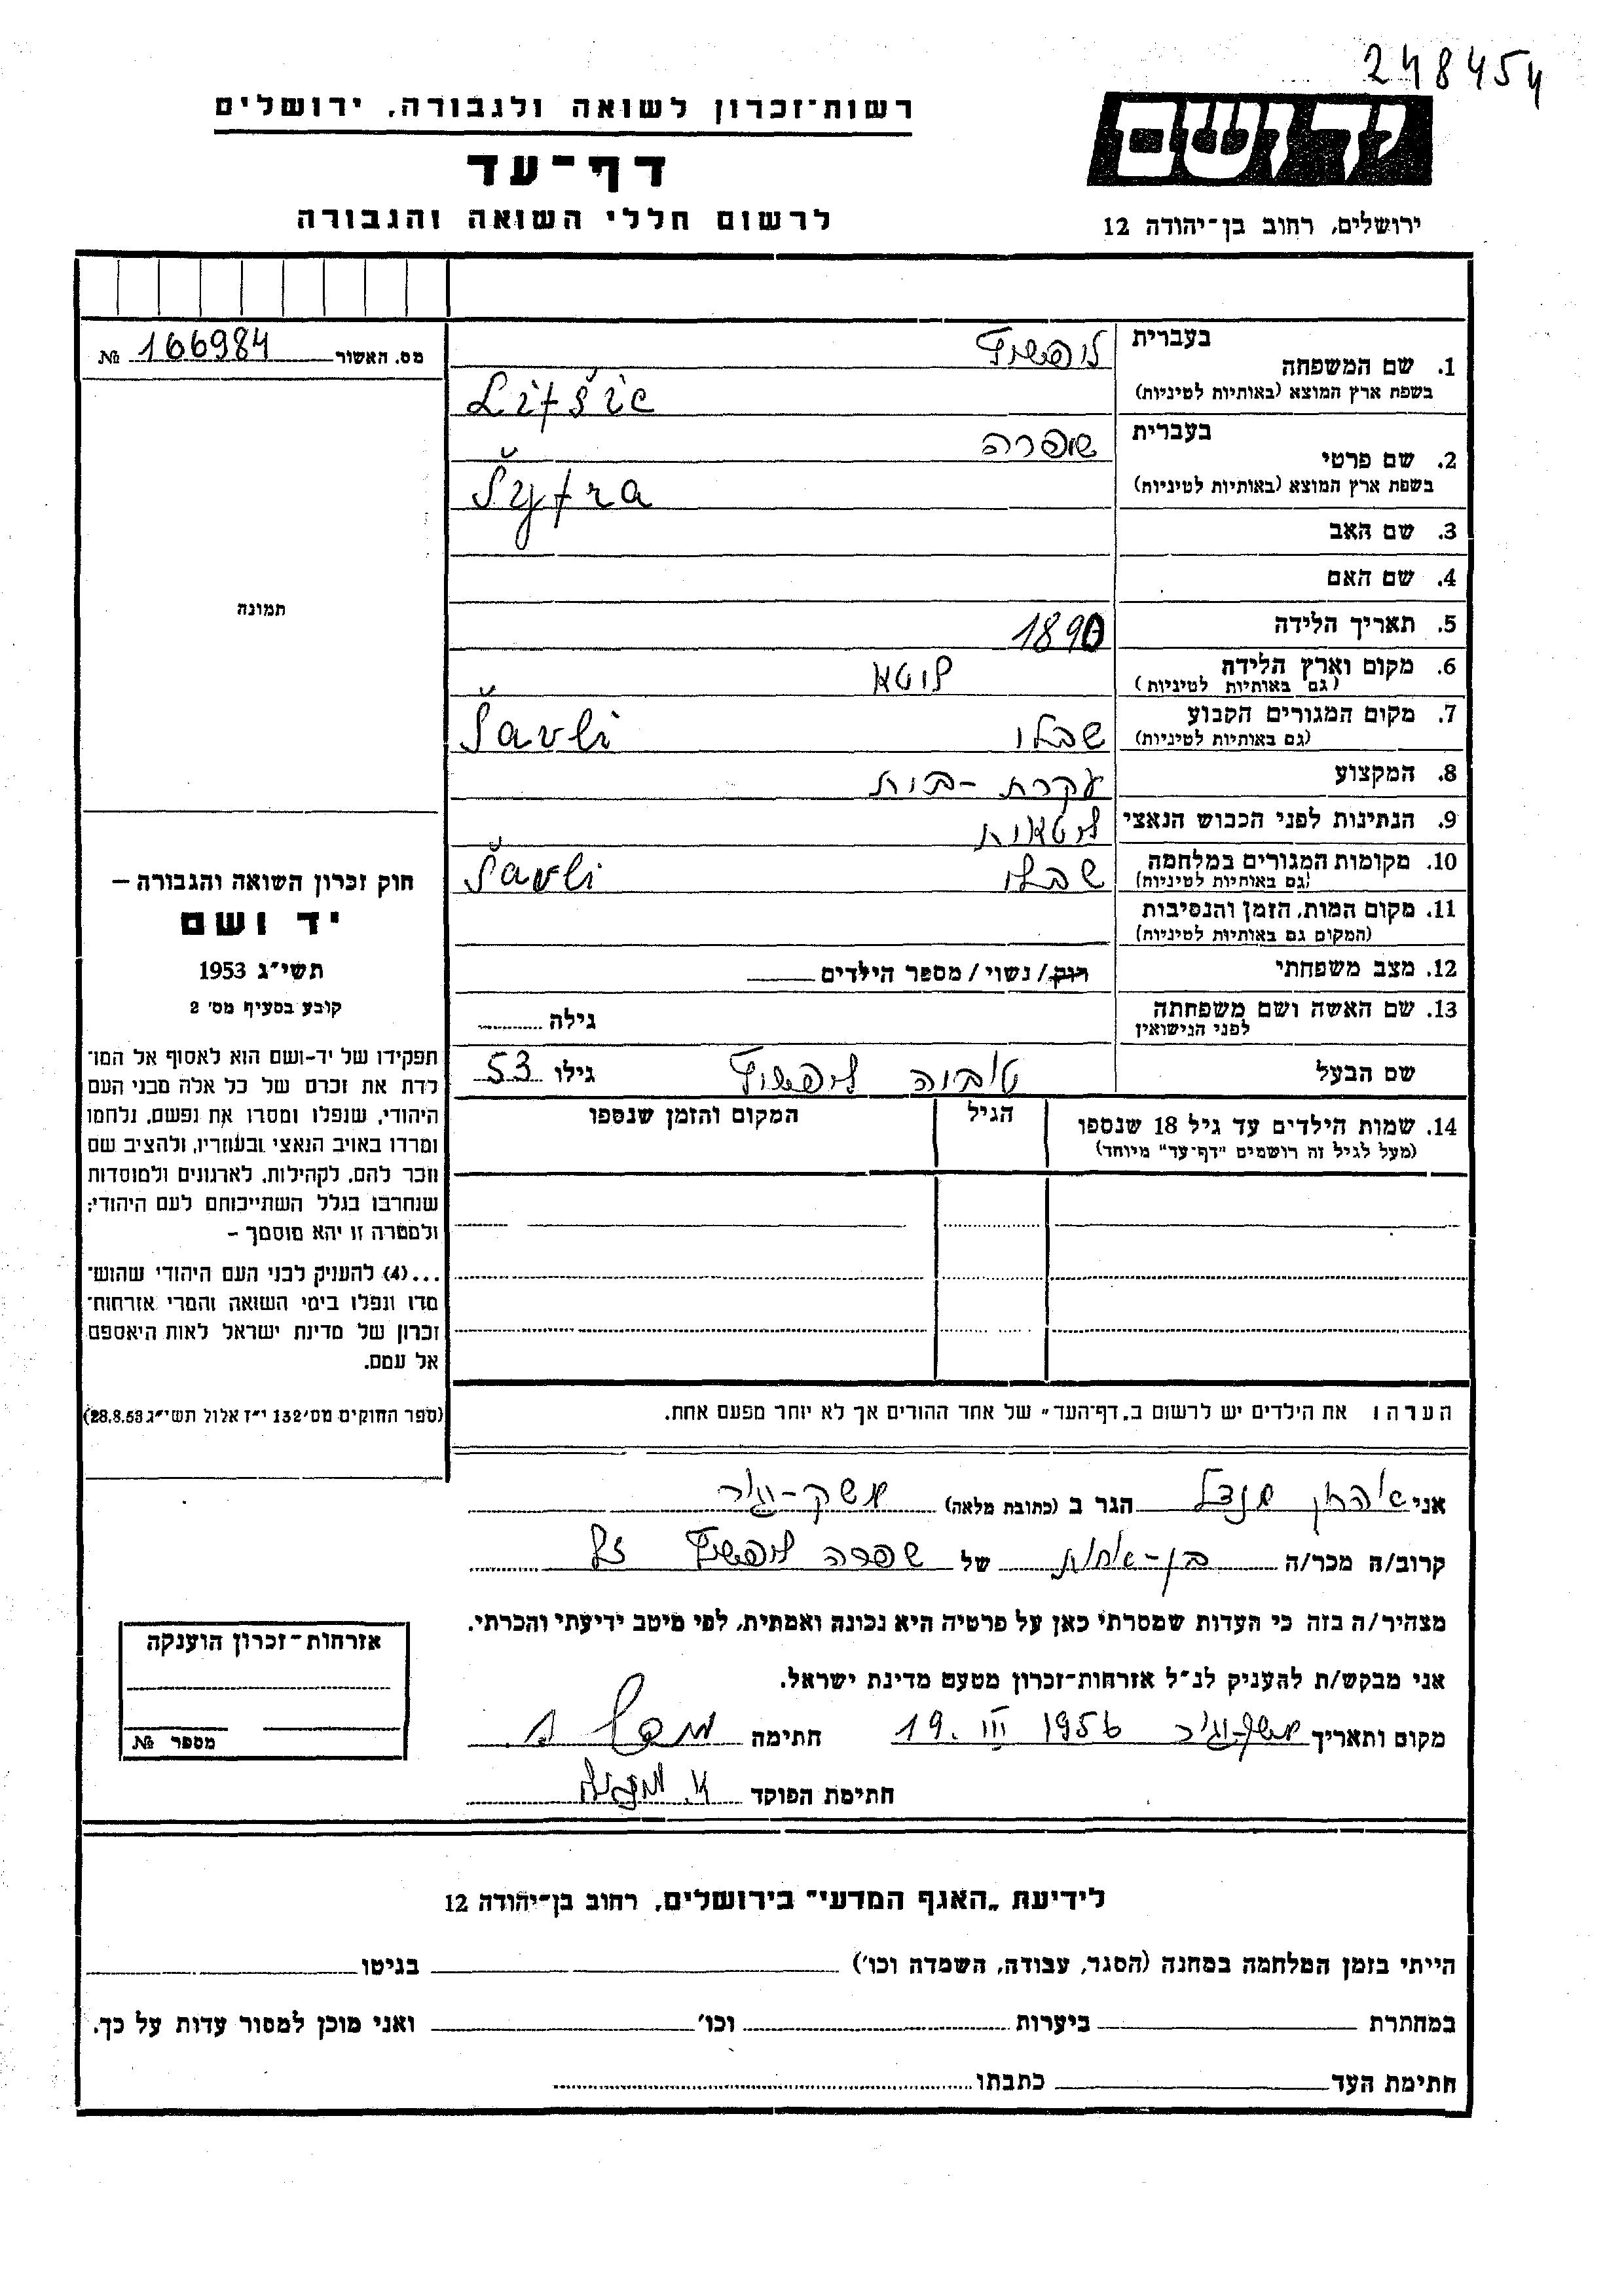 248454
רשות-זכרון לשואה ולגבורה, ירושלים
יד ושם
דף-עד
לרשום חללי השואה והגבורה
ירושלים, רחוב בן-יהודה 12
מס. האשור 166984 №
1. שם המשפחה בעברית ליפשיץ
בשפת ארץ המוצא (באותיות לטיניות) Lifšic
2. שם פרטי בעברית שיפרה
בשפת ארץ המוצא (באותיות לטיניות) Šyfra
3. שם האב
4. שם האם
5. תאריך הלידה 1890
6. מקום וארץ הלידה ליטא
(גם באותיות לטיניות)
7. מקום המגורים הקבוע שבלי Šavli
(גם באותיות לטיניות)
8. המקצוע עקרת-בית
9. הנתינות לפני הכבוש הנאצי ליטאית
10. מקומות המגורים במלחמה שבלי Šavli
(גם באותיות לטיניות)
11. מקום המות, הזמן והנסיבות
(המקום גם באותיות לטיניות)
12. מצב משפחתי רווק/ נשוי/ מספר הילדים
13. שם האשה ושם משפחתה גילה
לפני הנישואין
שם הבעל טוביה ליפשיץ גילו 53
14. שמות הילדים עד גיל 18 שנספו הגיל המקום והזמן שנספו
(מעל לגיל זה רושמים "דף-עד" מיוחד)
הערה: את הילדים יש לרשום ב„דף-העד" של אחד ההורים אך לא יותר מפעם אחת.
תמונה
חוק זכרון השואה והגבורה —
יד ושם
תשי"ג 1953
קובע בסעיף מס' 2
תפקידו של יד-ושם הוא לאסוף אל המו-
לדת את זכרם של כל אלה מבני העם
היהודי, שנפלו ומסרו את נפשם, נלחמו
ומרדו באויב הנאצי ובעוזריו, ולהציב שם
וזכר להם, לקהילות, לארגונים ולמוסדות
שנחרבו בגלל השתייכותם לעם היהודי;
ולמטרה זו יהא מוסמך –
...(4) להעניק לבני העם היהודי שהוש-
מדו ונפלו בימי השואה והמרי אזרחות-
זכרון של מדינת ישראל לאות היאספם
אל עמם.
(ספר החוקים מס' 132 י"ז אלול תשי"ג 28.8.53)
אני מנדל הגר ב (כתובת מלאה) משק-יגור
קרוב/ה מכר/ה בן-אחות של שפרה ליפשיץ ז"ל
מצהיר/ה בזה כי העדות שמסרתי כאן על פרטיה היא נכונה ואמתית, לפי מיטב ידיעתי והכרתי.
אני מבקש/ת להעניק לנ"ל אזרחות-זכרון מטעם מדינת ישראל.
מקום ותאריך משק-יגור 19. III 1956 חתימה
חתימת הפוקד
אזרחות-זכרון הוענקה
מספר №
לידיעת „האגף המדעי" בירושלים, רחוב בן-יהודה 12
הייתי בזמן המלחמה במחנה (הסגר, עבודה, השמדה וכו') בגיטו
במחתרת ביערות וכו' ואני מוכן למסור עדות על כך.
חתימת העד כתבתו